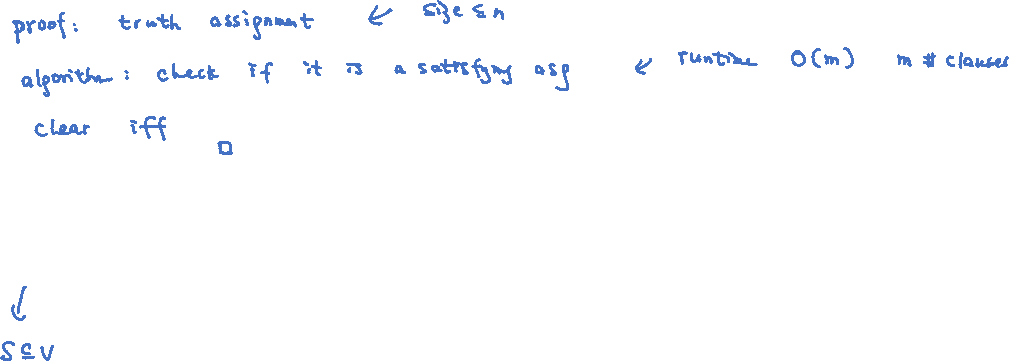 proof: truth assignment ↙ size ≤ n
algorithm: check if it is a satisfying asg ↙ runtime O(m) m # clauses
clear iff □
↓
S ⊆ V